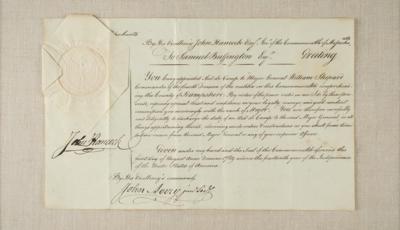 By His Excellency John Hancock Esqr. Govr. of the Commonwealth of
To Samuel Buffington Esqr. Greeting
You being appointed Aid de Camp to Major General William Shepard
Commander of the fourth division of the militia in this Commonwealth comprehending
the County of Hampshire By virtue of the power vested in me I do by these pre-
sents, reposing special trust and confidence in your loyalty, courage and good conduct
commission you accordingly with the rank of Major. You are therefore carefully
and diligently to discharge the duty of an Aid de Camp to the said Major General in all
things appertaining thereto, observing such orders & instructions as you shall from time
to time receive from the said Major General or any of your superior Officers
Given under my hand and the Seal of the Commonwealth aforesaid this
first day of August Anno Domini 1789 and in the fourteenth year of the Independence
of the United States of America
John Hancock
By His Excellency's command
John Avery junr. Secy.